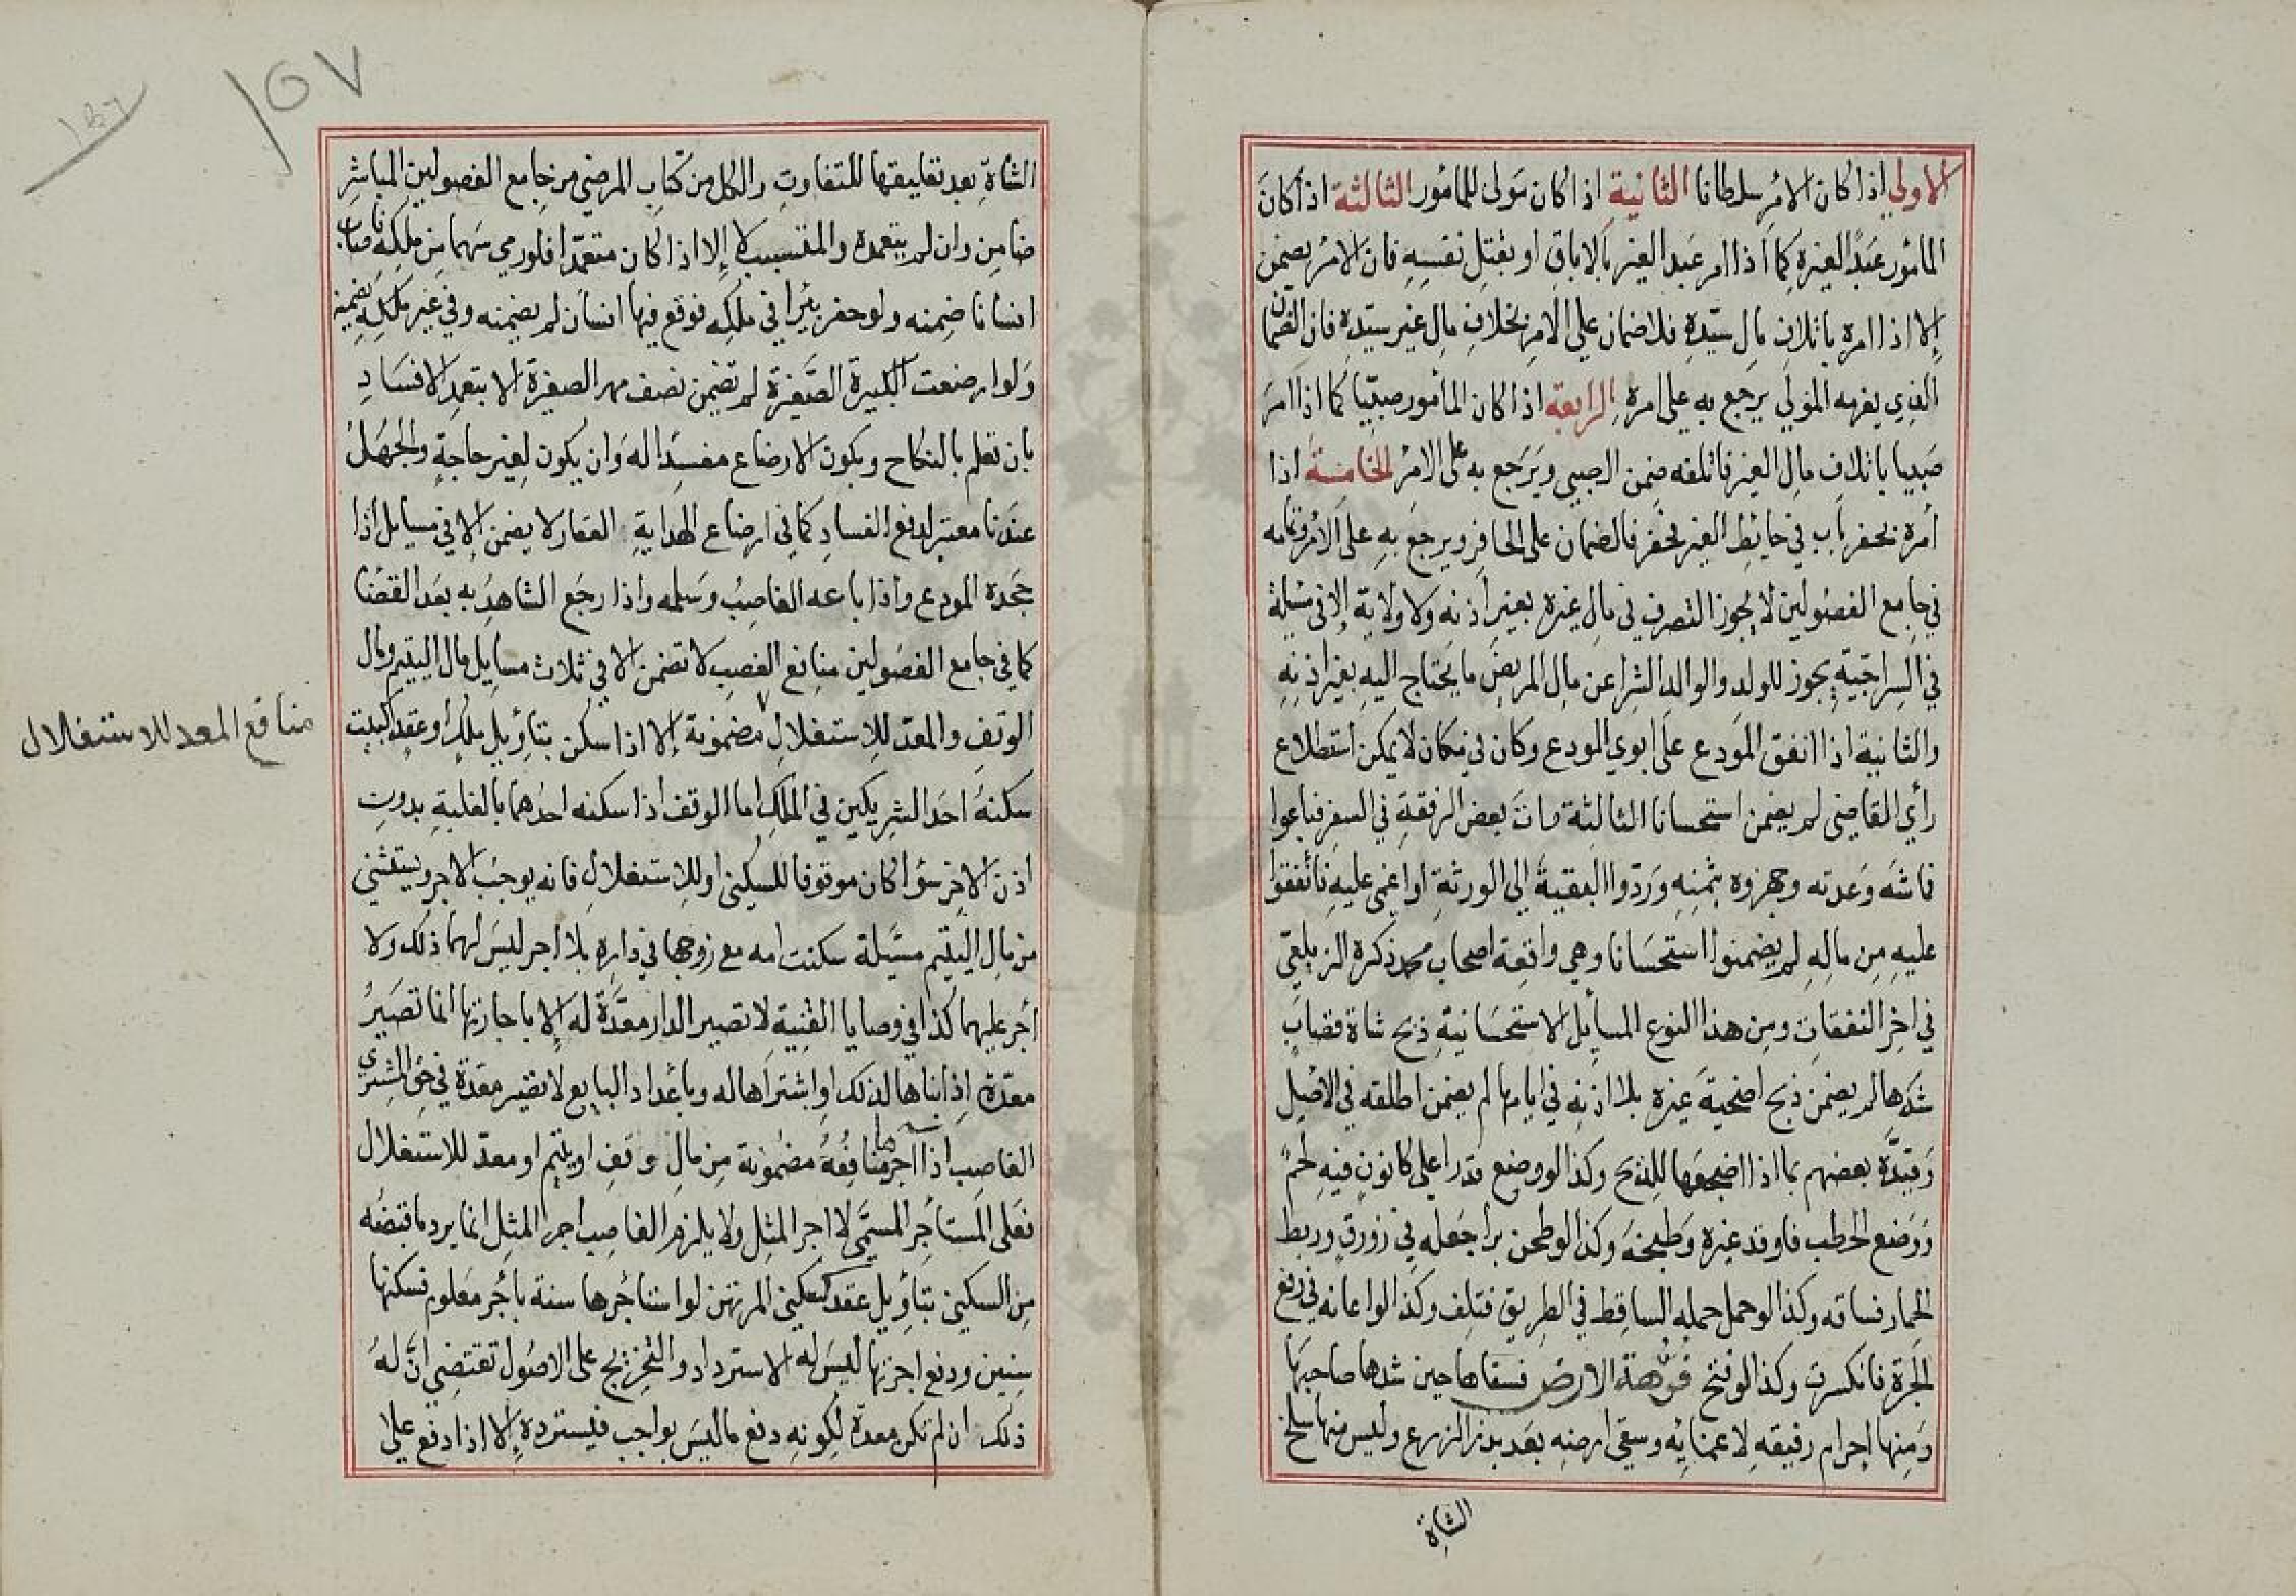 الاولى اذا كان الامر سلطانا الثانية اذا كان مولى للمامور الثالثة اذا كان
المامور عبد الغيره كما اذا امر عبد الغير بالاباق او بقتل نفسه فان الامر يضمن
الا اذا امره باتلاف مال سيده فلا ضمان على الامر بخلاف مال غير سيده فان الضمان
الذي يغرمه المولى يرجع به على امره الرابعة اذا كان المامور صبيا كما اذا امر
صبيا باتلاف مال الغير فاتلفه ضمن الصبي ويرجع به على الامر الخامسة اذا
أمره بحفر باب في حايط الغير فحفر فالضمان على الحافر ويرجع به على الامر وتمامه
في جامع الفصولين لا يجوز التصرف في مال غيره بغير اذنه ولا ولاية الا في مسيلة
في السراجية يجوز للولد والوالد الشرا من مال المريض ما يحتاج اليه بغير اذنه
والثانية اذا انفق المودع على ابوي المودع وكان في مكان لا يمكن استطلاع
رأي القاضي لم يضمن استحسانا الثالثة مات بعض الرفقة في السفر فباعوا
قاشه وعدته وجهزوه بثمنه وردوا البقية الى الورثة او اغمى عليه فانفقوا
عليه من ماله لم يضمنوا استحسانا وهي واقعة اصحاب محمد ذكره الزيلعي
في اخر النفقات ومن هذا النوع المسايل الاستحسانية ذبح شاة قصاب
شدها لم يضمن ذبح اضحية غيره بلا اذنه في ايامها لم يضمن اطلقه في الاصل
وقيده بعضهم بما اذا اضجعها للذبح وكذا لو وضع قدرا على كانون فيه لحم
ووضع الحطب فاوقد غيره وطبخه وكذا لو طحن برا جعله في زورق وربط
الحمار فساقه وكذا لو حمل حمله الساقط في الطريق فتلف وكذا لو اعانه في رفع
الجرة فانكسرت وكذا لو فتح فوهة الارض فسقاها حين شدها صاحبها
ومنها احرام رفيقه لاغمايه وسقي ارضه بعد بذر الزرع وليس منها سلخ
الشاة
١٥٧
الشاة بعد تعليقها للتفاوت والكل من كتاب المرضي من جامع الفصولين المباشر
ضامن وان لم يتعمده والمتسبب لا الا اذا كان متعمدا فلو رمى سهما من ملكه فاصاب
انسانا ضمنه ولو حفر بئرا في ملكه فوقع فيها انسان لم يضمنه وفي غير ملكه يضمنه
ولو ارضعت الكبيرة الصغيرة لم تضمن نصف مهر الصغيرة الا بتعمد الافساد
بان تعلم بالنكاح ويكون الارضاع مفسدا له وان يكون لغير حاجة والجهل
عندنا معتبر لدفع الفساد كما في ارضاع الهداية العقار لا يضمن الا في مسايل اذا
جحده المودع واذا باعه الغاصب وسلمه واذا رجع الشاهد به بعد القضا
كما في جامع الفصولين منافع الغصب لا تضمن الا في ثلاث مسايل مال اليتيم ومال
الوقف والمعد للاستغلال مضمونة الا اذا سكن بتاويل ملك او عقد كبيت
منافع المعد للاستغلال
سكنه احد الشريكين في الملك اما الوقف اذا سكنه احدهما بالغلبة بدون
اذن الاخر سؤا كان موقوفا للسكنى او للاستغلال فانه يوجب الاجر ويستثنى
من مال اليتيم مسيلة سكنت امه مع زوجها في داره بلا اجر ليس لهما ذلك ولا
أجر عليهما كذا في وصايا القنية لا تصير الدار معدة له الا باجارتها انما تصير
معدة اذا بناها لذلك او اشتراها له وباعداد البايع لا تصير معدة في حق المشتري
الغاصب اذا اجر منافعه مضمونة من مال وقف او يتيم او معد للاستغلال
فعلى المستأجر المسمى لا اجر المثل ولا يلزم الغاصب اجر المثل انما يرد ما قبضه
من السكنى بتاويل عقد كسكنى المرتهن لو استأجرها سنة بأجر معلوم فسكنها
سنين ودفع اجرتها ليس له الاسترداد والتخريج على الاصول تقتضي ان له
ذلك ان لم تكن معدة لكونه دفع ما ليس بواجب فيسترده الا اذا دفع على